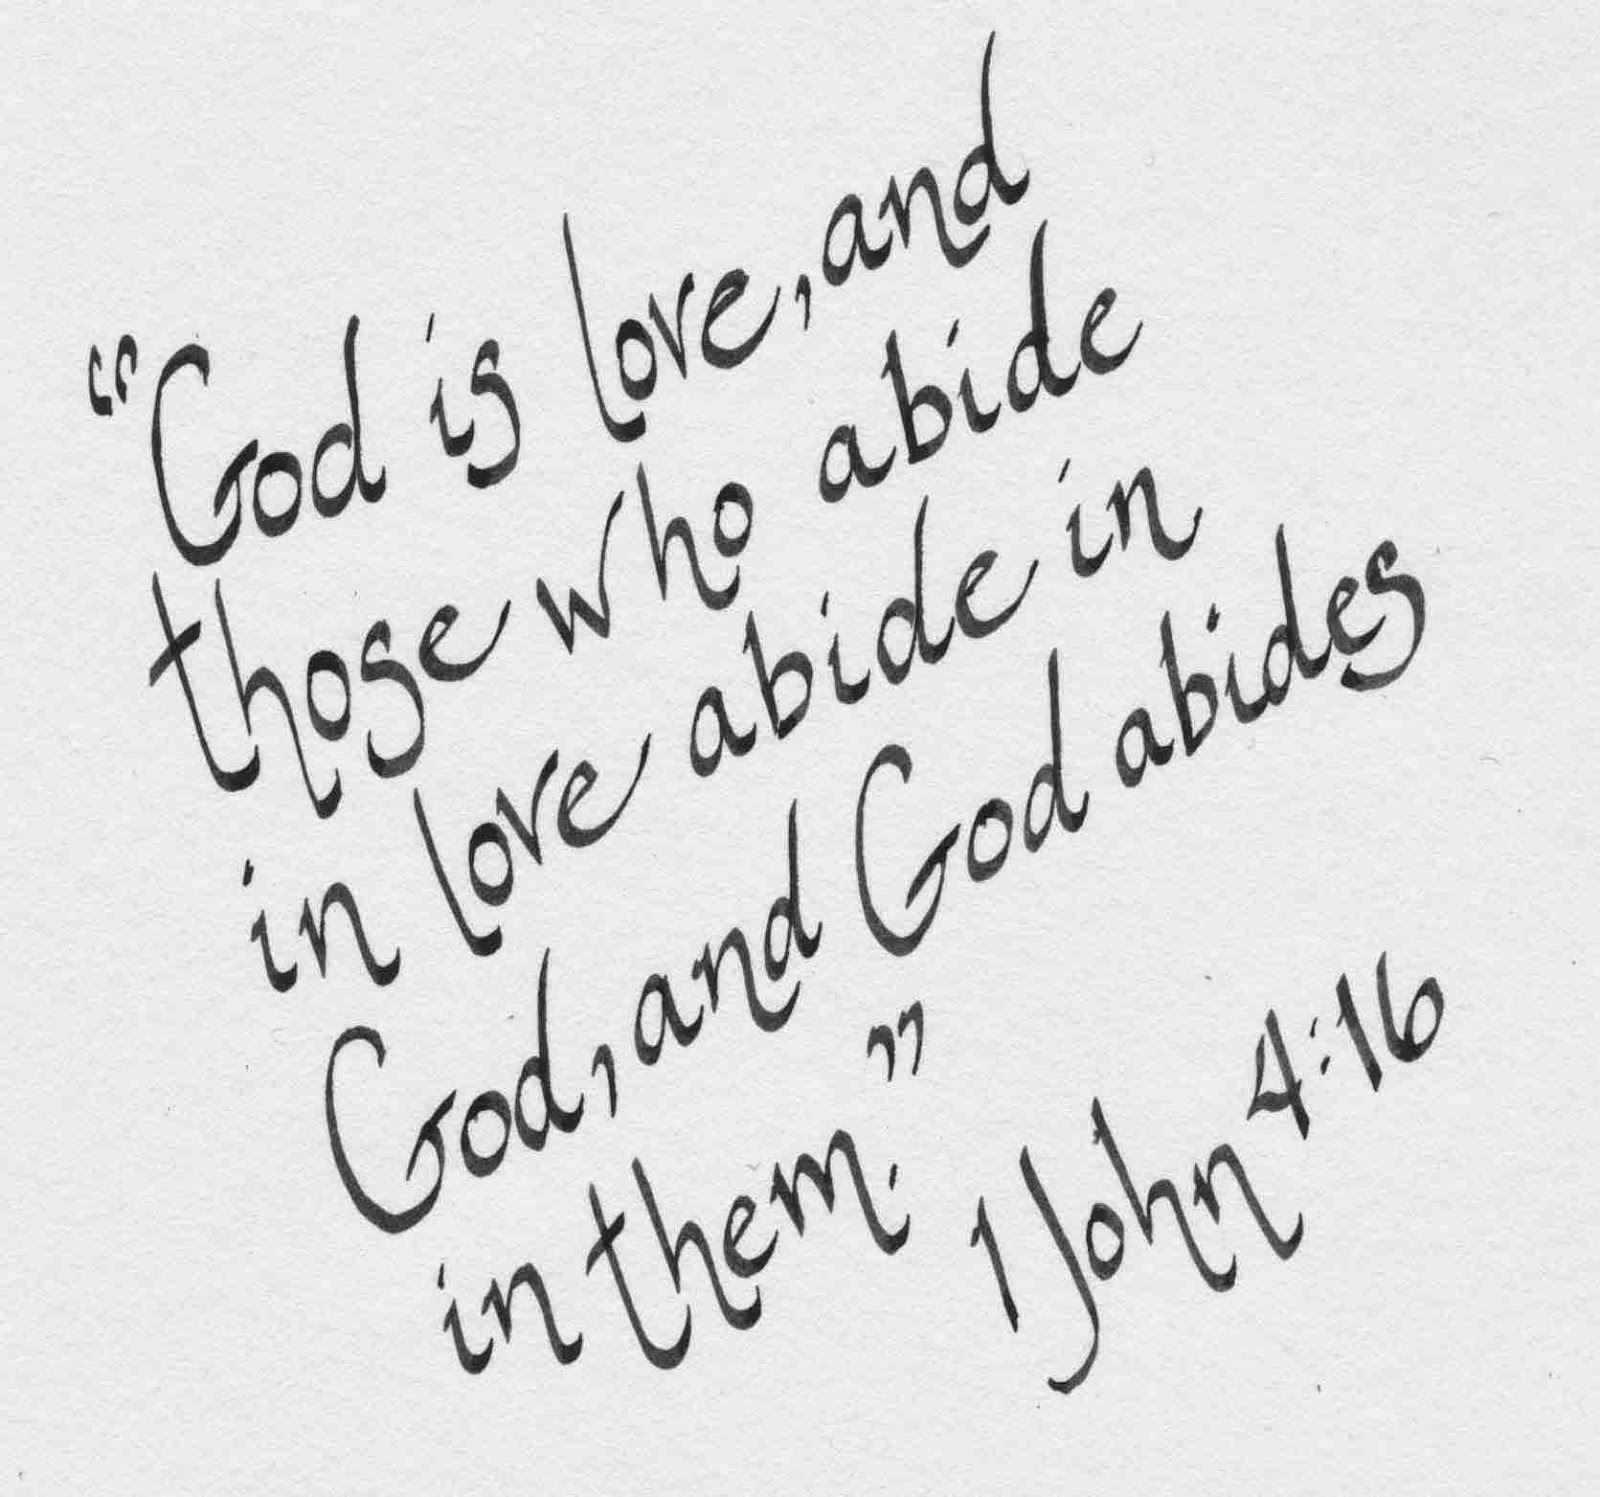 “God is love, and
those who abide
in love abide in
God, and God abides
in them.”
1 John 4:16